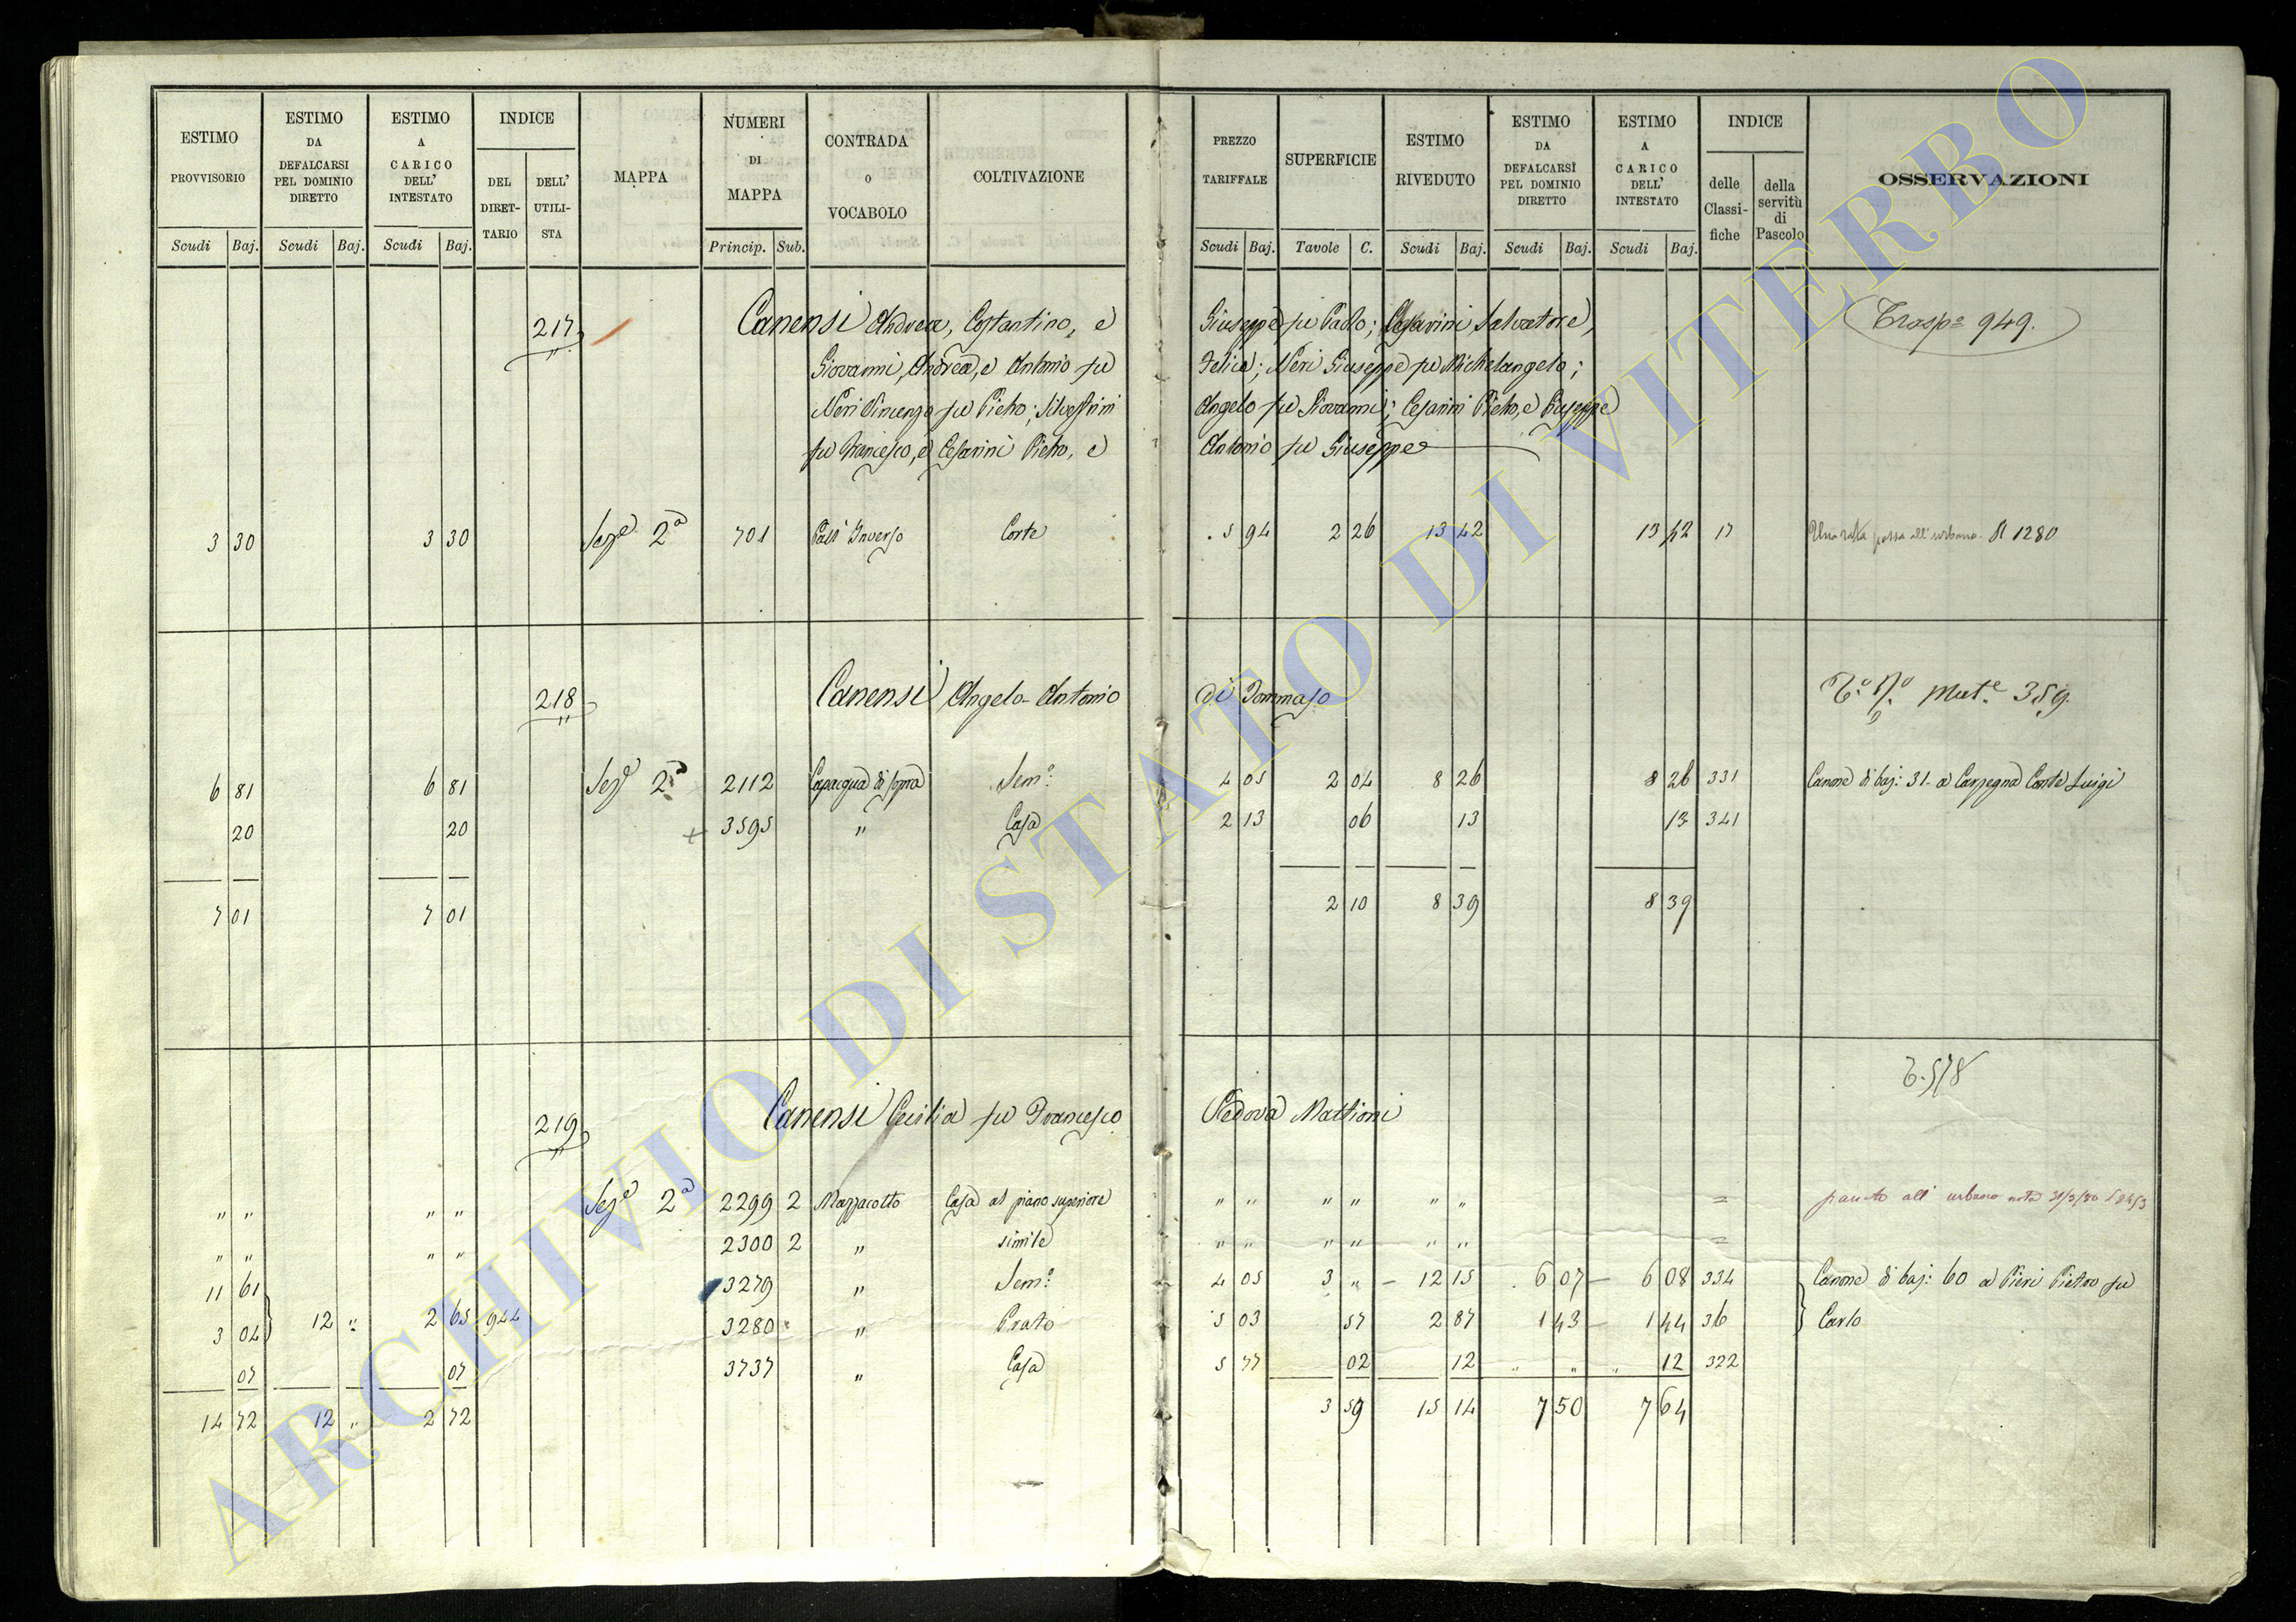 ESTIMO PROVVISORIO Scudi Baj.
ESTIMO DA DEFALCARSI PEL DOMINIO DIRETTO Scudi Baj.
ESTIMO A CARICO DELL' INTESTATO Scudi Baj.
INDICE DEL DIRET- TARIO DELL' UTILI- STA
MAPPA
NUMERI DI MAPPA Princip. Sub.
CONTRADA O VOCABOLO
COLTIVAZIONE
PREZZO TARIFFALE Scudi Baj.
SUPERFICIE Tavole C.
ESTIMO RIVEDUTO Scudi Baj.
ESTIMO DA DEFALCARSI PEL DOMINIO DIRETTO Scudi Baj.
ESTIMO A CARICO DELL' INTESTATO Scudi Baj.
INDICE delle Classi- fiche della servitù di Pascolo
OSSERVAZIONI
217 Canensi Andrea, Costantino, e Giuseppe fu Paolo; Cesarini Salvatore, Trasp° 949.
Giovanni, Andrea, e Antonio fu Felice; Neri Giuseppe fu Michelangelo;
Neri Vincenzo fu Pietro; Silvestrini Angelo fu Giovanni; Cesarini Pietro, e Giuseppe
fu Francesco, e Cesarini Pietro, e Antonio fu Giuseppe
3 30 3 30 Sezᵉ 2ª 701 Inverso Corte 5 94 2 26 13 42 13 42 17 Una rata passa all'urbano 1280
218 Canensi Angelo-Antonio di Tommaso Mutᵉ 359.
6 81 6 81 Sezᵉ 2ª 2112 Capacqua di sopra Sem° 4 05 2 04 8 26 8 26 331 Canone di baj: 31. a Carpegna Conte Luigi
20 20 + 3595 " Casa 2 13 06 13 13 341
7 01 7 01 2 10 8 39 8 39
T. 578
219 Canensi Cecilia fu Francesco Vedova Mattioni
" " " " Sezᵉ 2ª 2299 2 Mazzacotto Casa al piano superiore " " " " " " = all' urbano nota 31/3/80
" " " " 2300 2 " simile " " " " " " =
11 61 3279 " Sem° 4 05 3 " 12 15 6 07 6 08 334 Canone di baj: 60 a Pieri Pietro fu
3 04 12 " 2 65 944 3280 " Prato 5 03 57 2 87 1 43 1 44 36 Carlo
07 07 3737 " Casa 5 77 02 12 " " 12 322
14 72 12 " 2 72 3 59 15 14 7 50 7 64
ARCHIVIO DI STATO DI VITERBO